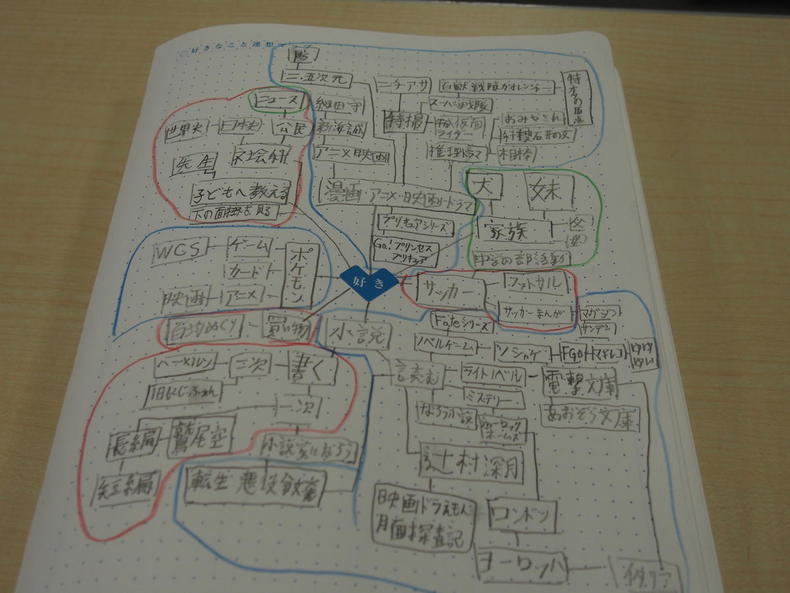 好きなこと連想
二・五次元
ニチアサ
スーパー戦隊
特撮
仮面ライダー
相棒
ニュース
世界史
日本史
公民
先生
社会科
子どもへ教える
細田守
新海誠
アニメ映画
漫画 アニメ・映画・ドラマ
プリキュアシリーズ
Go!プリンセスプリキュア
犬
妹
家族
WCS
ゲーム
カード
映画
アニメ
ポケモン
好き
サッカー
フットサル
サッカーまんが
買い物
小説
Fateシリーズ
ノベルゲーム
ソシャゲ
FGO
マギレコ
読む
ライトノベル
電撃文庫
ミステリー
なろう小説
あおぞら文庫
シャーロックホームズ
辻村深月
映画ドラえもん
月面探査記
ロンドン
ヨーロッパ
イタリア
ハーメルン
二次
書く
一次
長編
鷲尾空
短編
小説家になろう
転生悪役令嬢